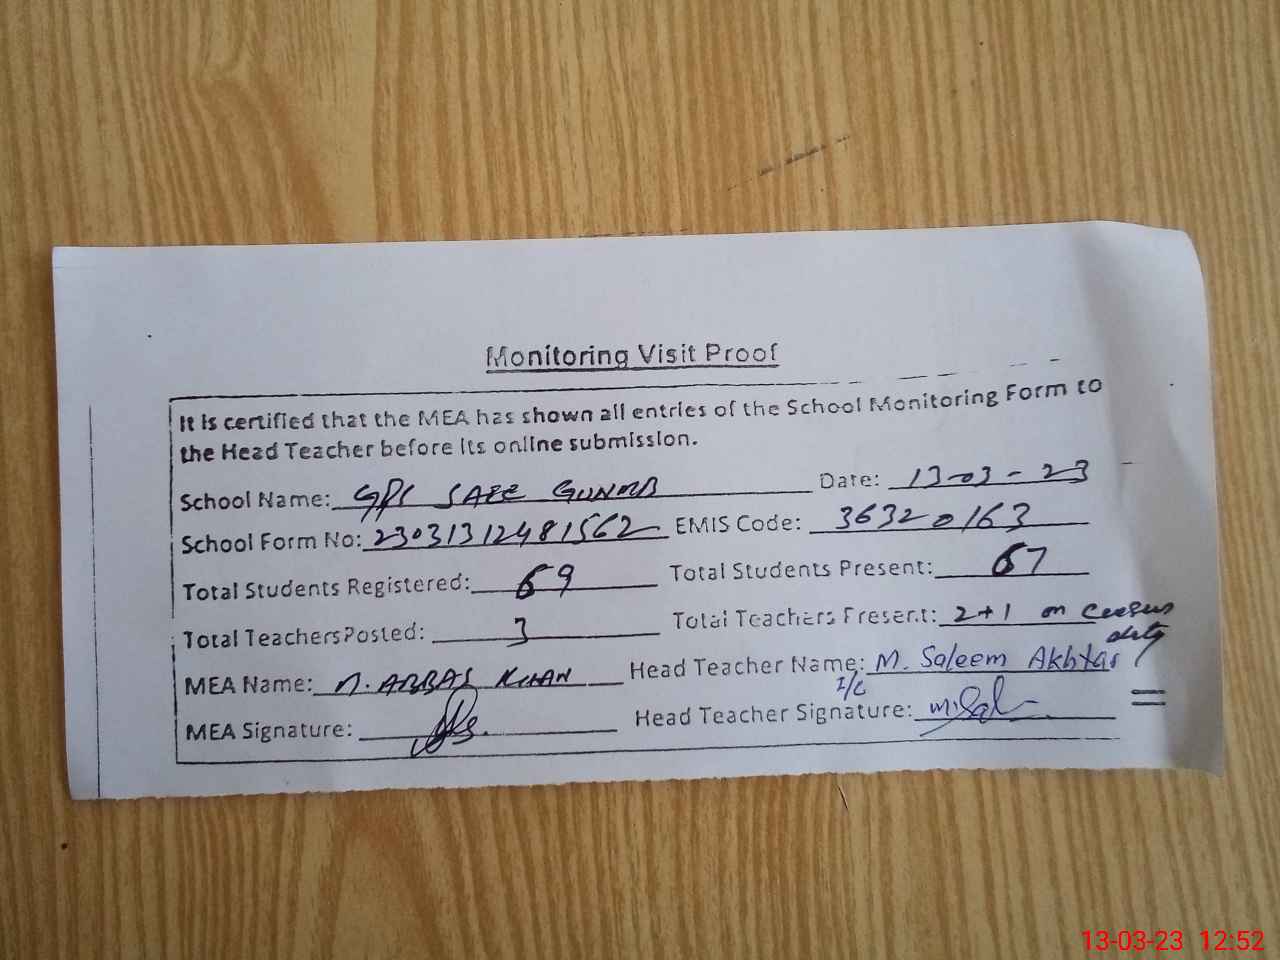 Monitoring Visit Proof
It is certified that the MEA has shown all entries of the School Monitoring Form to
the Head Teacher before its online submission.
School Name: GPS Date: 13-03-23
School Form No: 23031312481562 EMIS Code: 36320163
Total Students Registered: 69 Total Students Present: 67
Total Teachers Posted: 3 Total Teachers Present: 2+1 on census
duty
MEA Name: M. ABBAS KHAN Head Teacher Name: M. Saleem Akhtar
I/C
MEA Signature: Head Teacher Signature:
13-03-23 12:52